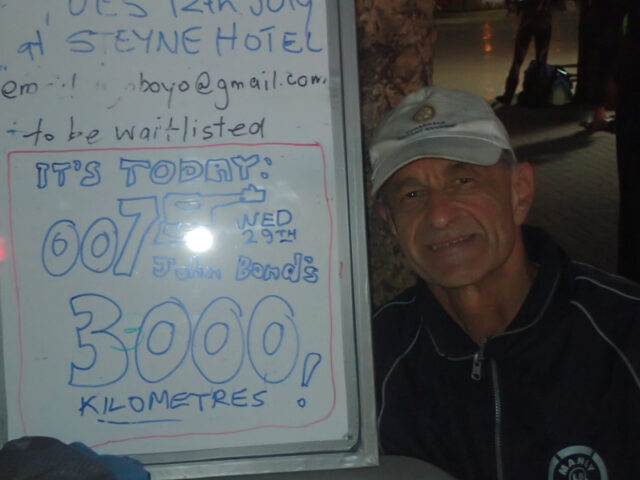 TUES 12TH JULY
at STEYNE HOTEL
boyo@gmail.com
to be waitlisted
IT'S TODAY:
007
WED
29TH
John Bond's
3000
KILOMETRES!
MANLY